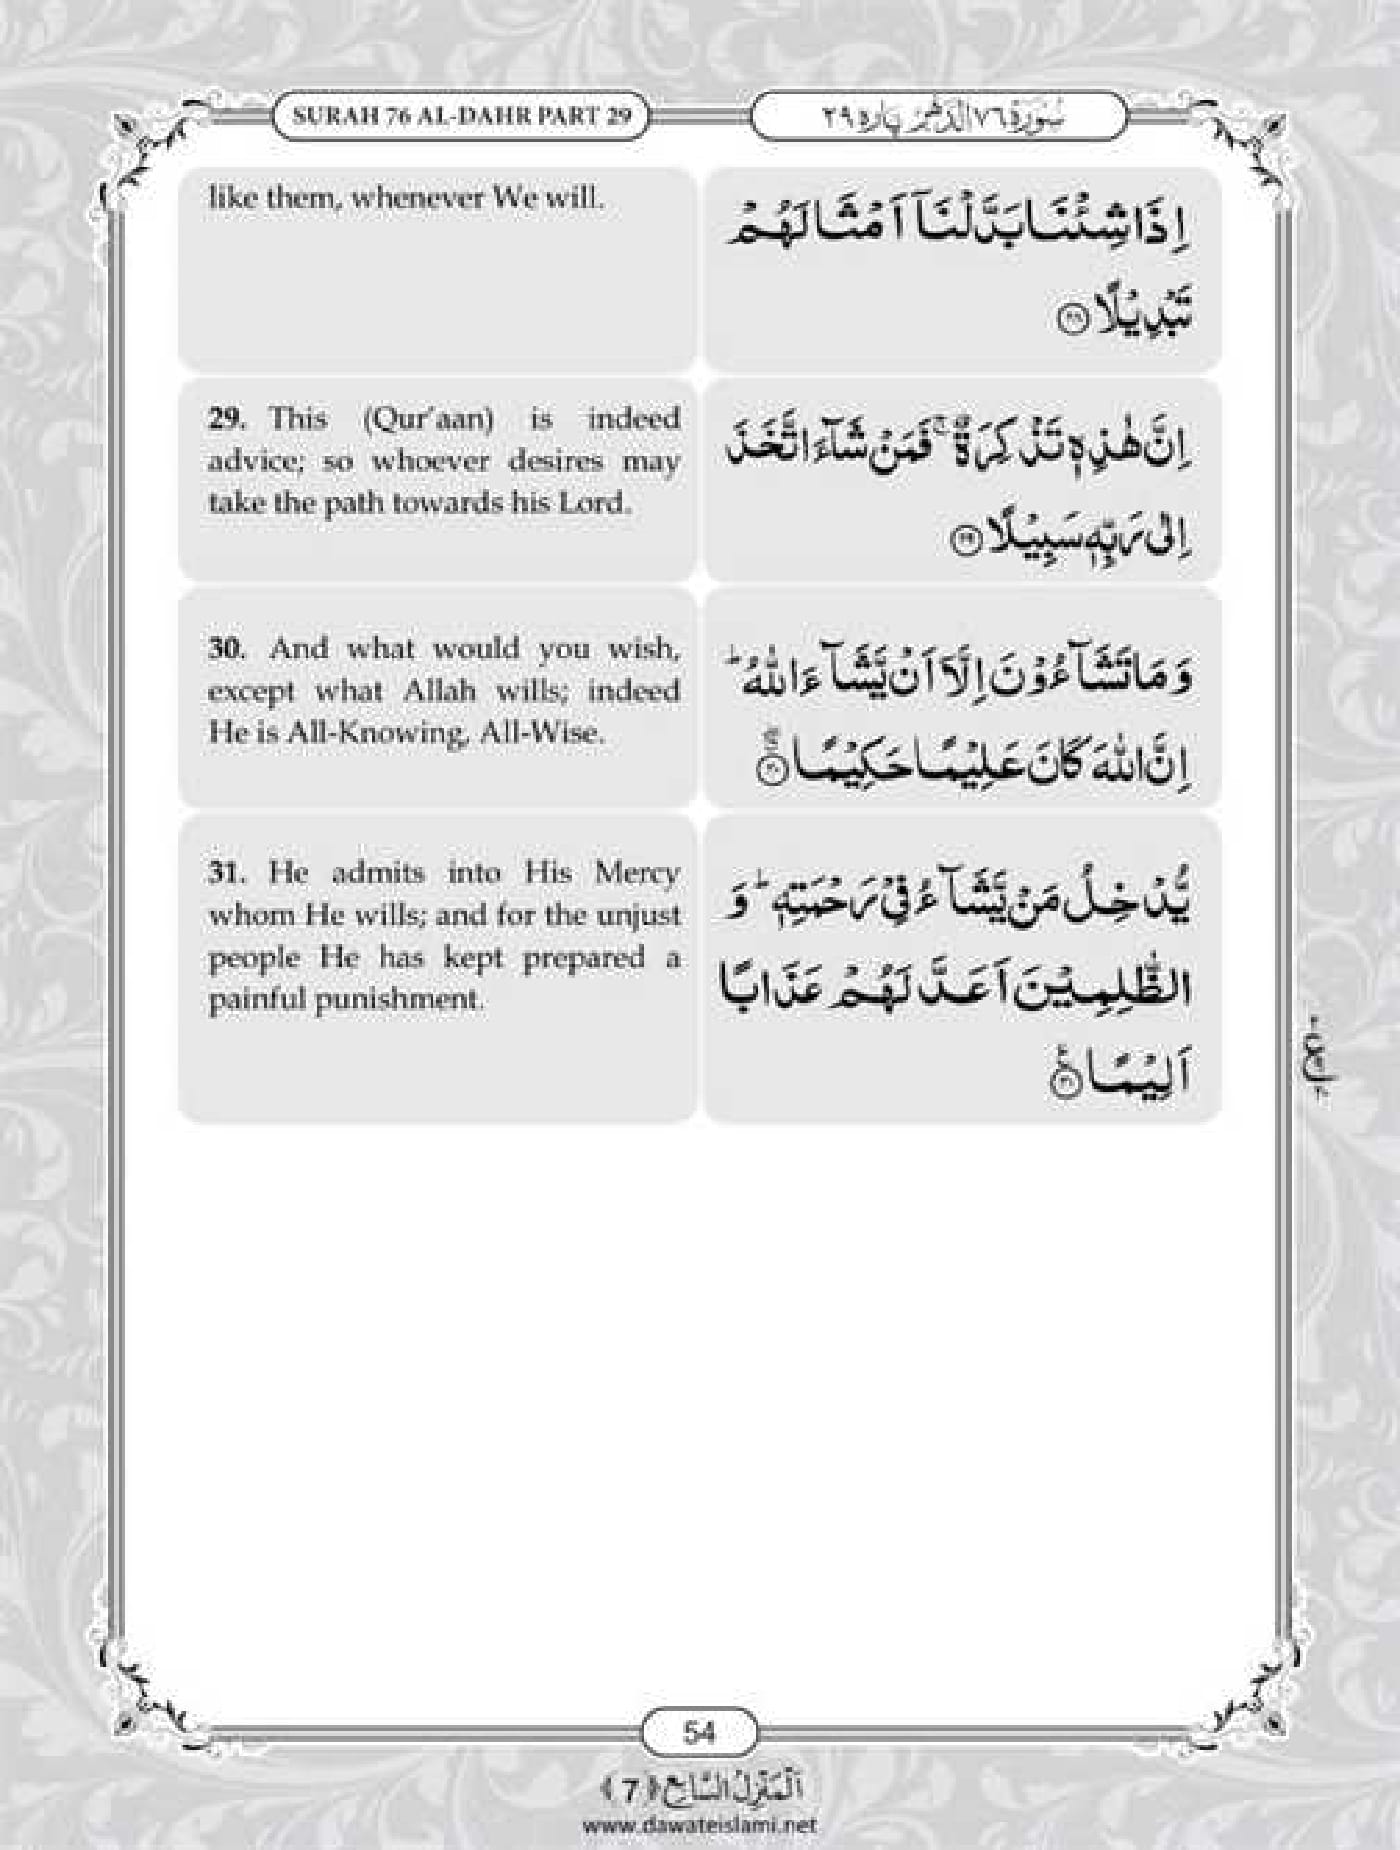 SURAH 76 AL-DAHR PART 29
سُوْرَةُ ٧٦ الدَّهْر پاره ٢٩
like them, whenever We will.
اِذَا شِئْنَا بَدَّلْنَاۤ اَمْثَالَهُمْ
تَبْدِيْلًا ۝٢٨
29. This (Qur’aan) is indeed
advice; so whoever desires may
take the path towards his Lord.
اِنَّ هٰذِهٖ تَذْكِرَةٌ ۚ فَمَنْ شَآءَ اتَّخَذَ
اِلٰى رَبِّهٖ سَبِيْلًا ۝٢٩
30. And what would you wish,
except what Allah wills; indeed
He is All-Knowing, All-Wise.
وَ مَا تَشَآءُوْنَ اِلَّاۤ اَنْ يَّشَآءَ اللّٰهُ ؕ
اِنَّ اللّٰهَ كَانَ عَلِيْمًا حَكِيْمًا ۝٣٠
31. He admits into His Mercy
whom He wills; and for the unjust
people He has kept prepared a
painful punishment.
يُّدْخِلُ مَنْ يَّشَآءُ فِيْ رَحْمَتِهٖ ؕ وَ
الظّٰلِمِيْنَ اَعَدَّ لَهُمْ عَذَابًا
اَلِيْمًا ۝٣١
54
اَلْمَنْزِلُ السَّابِع ﴿7﴾
www.dawateislami.net